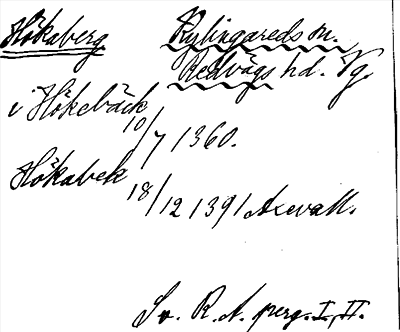 Hökaberg. Kylingareds sn.
Redvägs hd. Vg.
i Hökebäck
10/7 1360.
Hökabek
18/12 1391 Axevall.
Sv. R. A. perg. I, II.